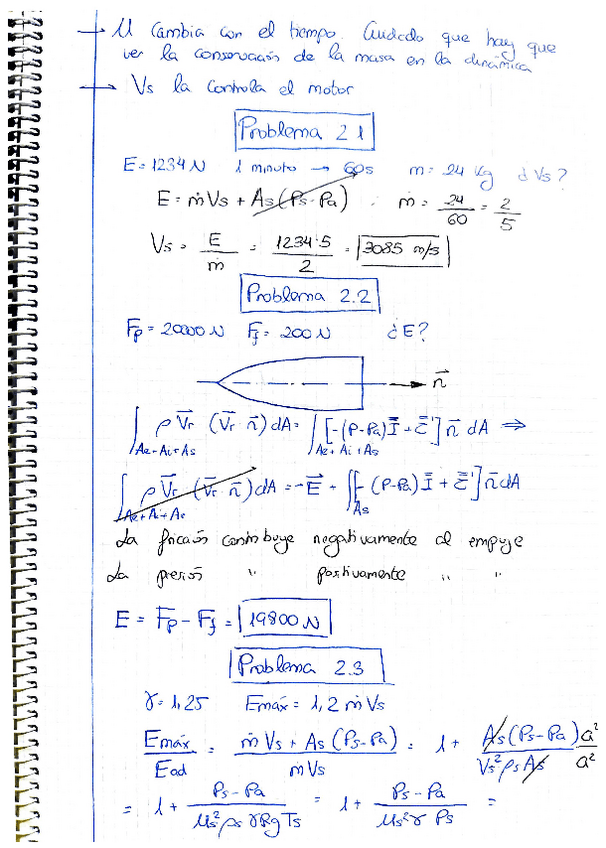 → M Cambia con el tiempo. Cuidado que hay que
ver la conservación de la masa en la dinámica
→ Vs la controla el motor
Problema 2.1
E = 1234 N 1 minuto → 60s m = 24 Kg ¿Vs?
E = ṁVs + As(Ps-Pa) ṁ = 24/60 = 2/5
Vs = E/ṁ = 1234·5/2 = 3085 m/s
Problema 2.2
Fp = 20000 N Ff = 200 N ¿E?
n⃗
∫Ae+Ai+As ρ V⃗r (V⃗r · n⃗) dA = ∫Ae+Ai+As [-(P-Pa)Ī + τ̄'] n⃗ dA ⇒
∫Ae+Ai+As ρ V⃗r (V⃗r · n⃗) dA = -E⃗ + ∫As [-(P-Pa)Ī + τ̄'] n⃗ dA
La fricción contribuye negativamente al empuje
La presión " positivamente " "
E = Fp - Ff = 19800 N
Problema 2.3
γ = 1,25 Emáx = 1,2 ṁ Vs
Emáx/Ead = (ṁ Vs + As (Ps-Pa))/(ṁVs) = 1 + (As (Ps-Pa))/(Vs² ρs As) a²/a²
= 1 + (Ps-Pa)/(Ms² ρs γ Rg Ts) = 1 + (Ps-Pa)/(Ms² γ Ps) =